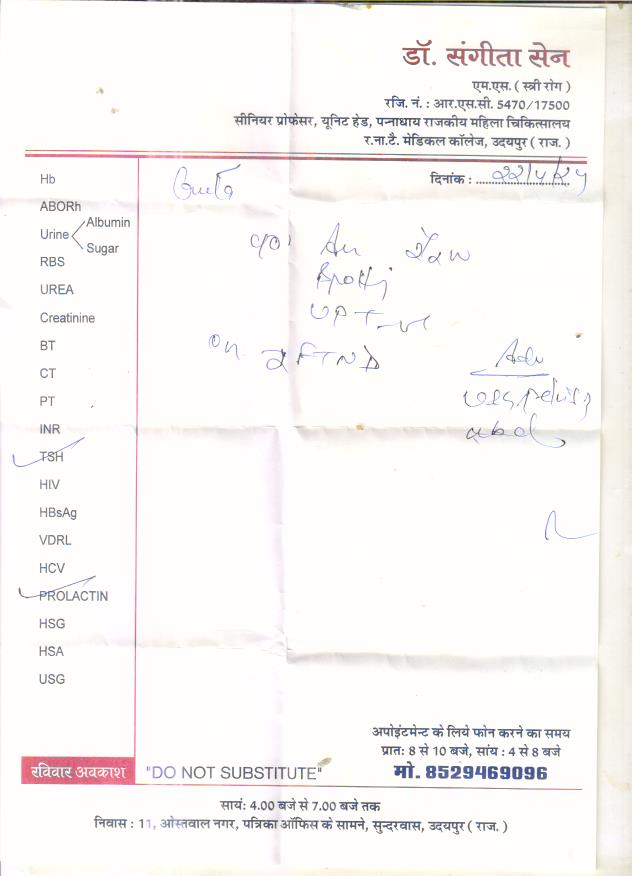 डॉ. संगीता सेन
एम.एस. ( स्त्री रोग )
रजि. नं. : आर.एस.सी. 5470/17500
सीनियर प्रोफेसर, यूनिट हेड, पन्नाधाय राजकीय महिला चिकित्सालय
र.ना.टै. मेडिकल कॉलेज, उदयपुर ( राज. )
दिनांक :
Hb
ABORh
Urine Albumin
Sugar
RBS
UREA
Creatinine
BT
CT
PT
INR
TSH
HIV
HBsAg
VDRL
HCV
PROLACTIN
HSG
HSA
USG
UPT-ve
Adv
अपोइंटमेन्ट के लिये फोन करने का समय
प्रात: 8 से 10 बजे, सांय : 4 से 8 बजे
मो. 8529469096
रविवार अवकाश
"DO NOT SUBSTITUTE"
सायं: 4.00 बजे से 7.00 बजे तक
निवास : 11, ओस्तवाल नगर, पत्रिका ऑफिस के सामने, सुन्दरवास, उदयपुर ( राज. )